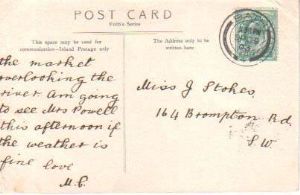 POST CARD
This space may be used for
communication—Inland Postage only
The Address only to be
written here
the market
overlooking the
river. Am going
to see Mrs Powell
this afternoon if
the weather is
fine love
M.C.
Miss J Stokes,
164 Brompton Rd.
S.W